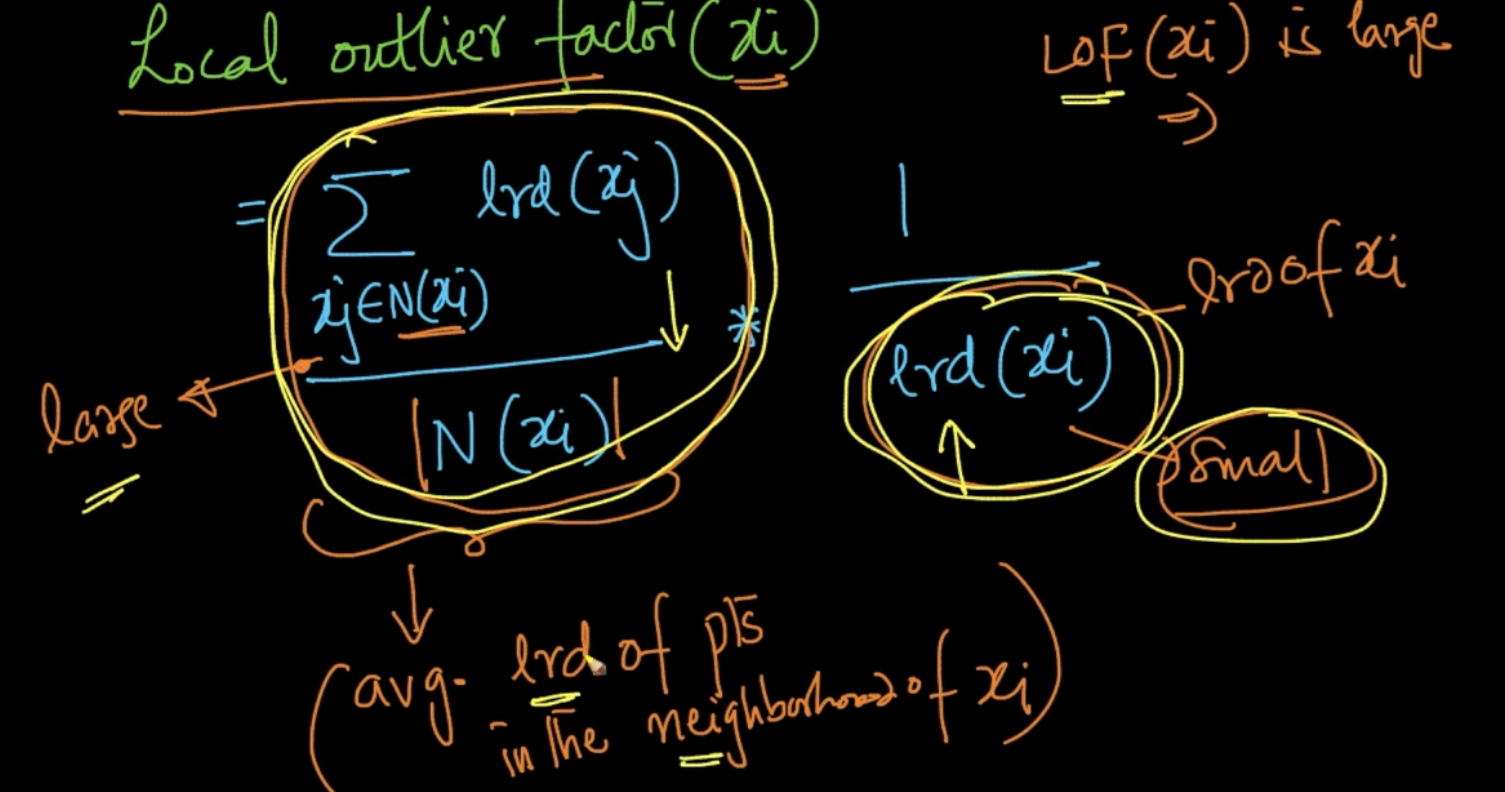 Local outlier factor (xi)
LOF (xi) is large
⇒
= Σ lrd (xj)
xj ∈ N(xi)
|N (xi)|
*
1
lrd (xi)
lrd of xi
small
large
(avg. lrd of pts
in the neighborhood of xi)